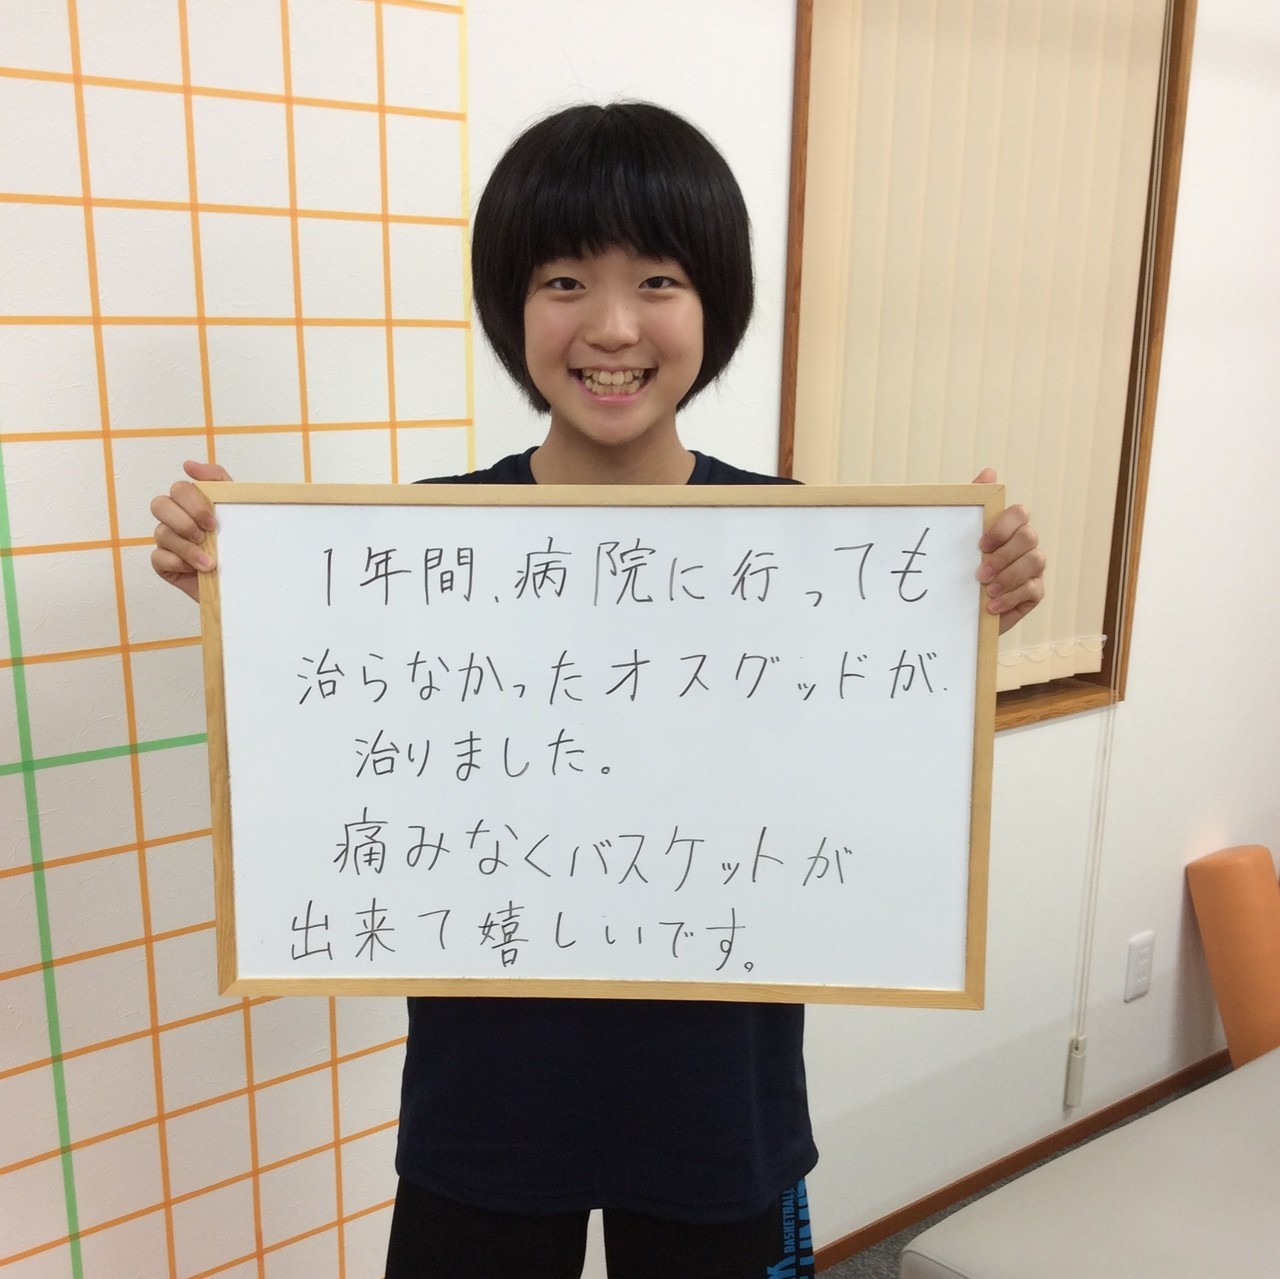 1年間、病院に行っても
治らなかったオスグッドが、
治りました。
痛みなくバスケットが
出来て嬉しいです。
BASKETBALL